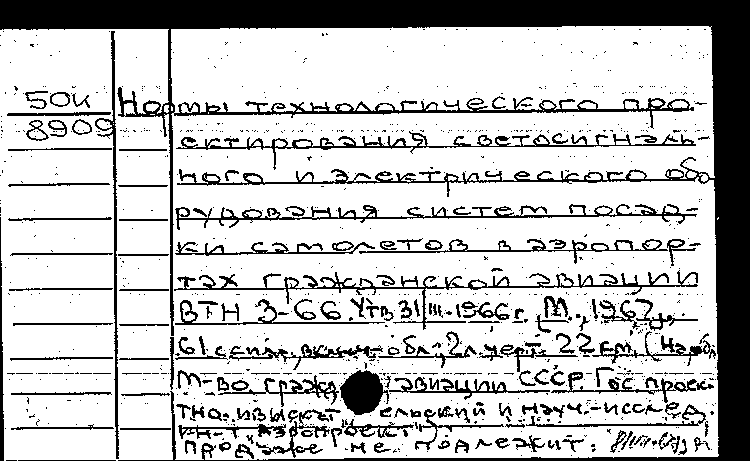 50и Нормы технологического про-
8909 ектирования светосигналь-
ного и электрического обо
рудования систем посад-
ки самолетов в аэропор-
тах гражданской авиации
ВТН 3-66. Утв 31/III-1966г. М., 1967
61 с с ил., включ. обл.; 2 л. черт. 22 см. (
М-во гражд авиации СССР. Гос. проек
тно-изыскат ельский и науч.-исслед.
ин-т "Аэропроект")
продаже не подлежит.